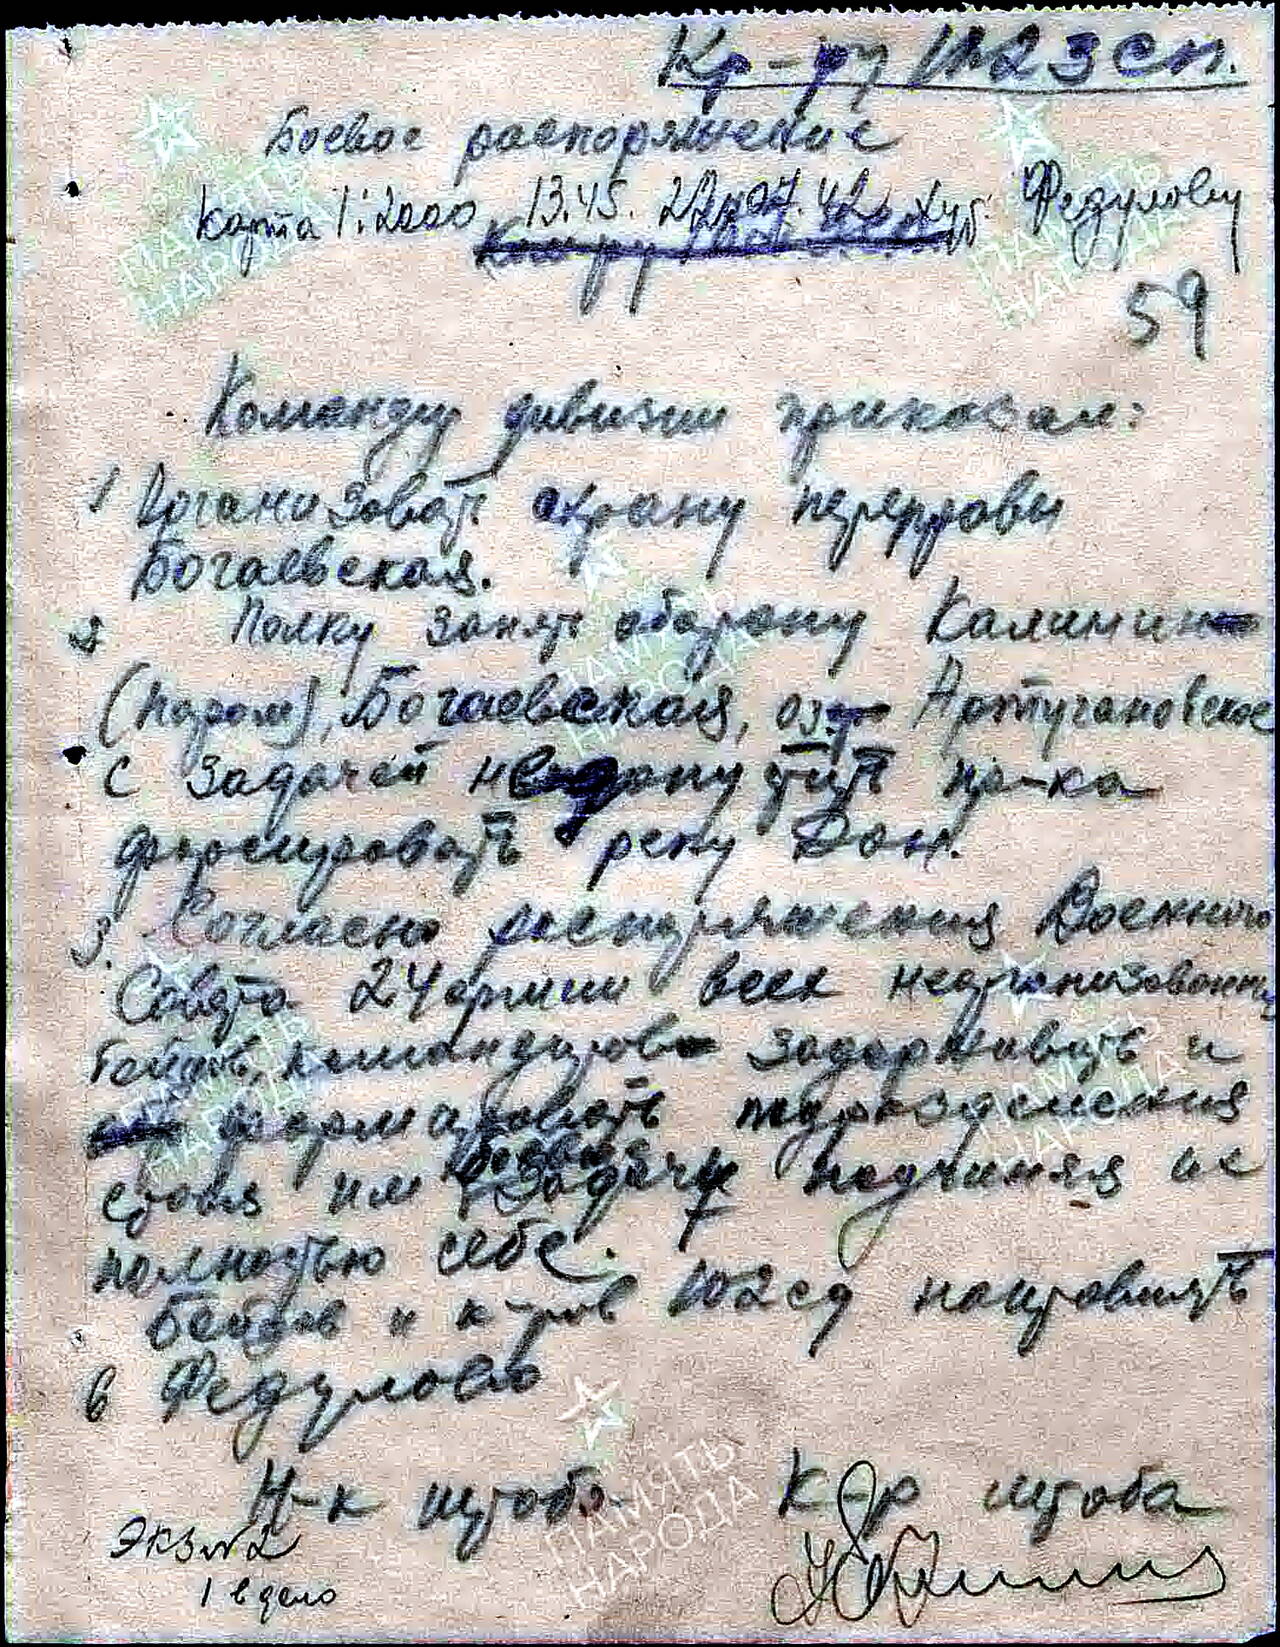 Кр-ру 1123 сп.
Боевое распоряжение
Карта 1:2000 13.45. 22.07.42 хут. Федулову
59
Командир дивизии приказал:
1 Организовать охрану переправы
Богаевская.
2 Полку занять оборону Калинин
(паром), Богаевская, оз. Арпугановское
с задачей недопустить пр-ка
форсировать реку Дон.
3. Согласно распоряжения Военного
Совета 24 армии всех неорганизованных
бойцов, командиров задерживать и
формировать подразделения
ставя им боевые задачи подчиняя их
полностью себе.
Бойцов и к-ров 1102 сд направлять
в Федулов
Н-к штаба К-р штаба
Экз №2
1 в дело
ПАМЯТЬ
НАРОДА